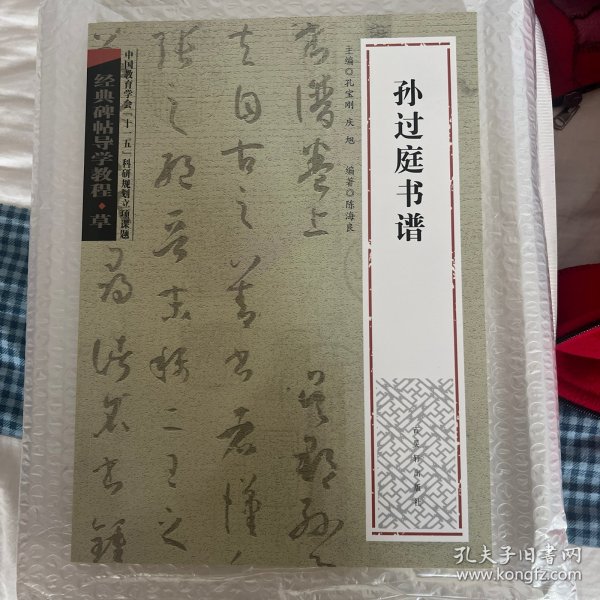 孙过庭书谱
主编◎孔宝刚 庆旭 编著◎陈海良
中国教育学会“十一五”科研规划立项课题
经典碑帖导学教程·草
书谱卷上
吴郡孙
夫自古之善书者汉
张之绝晋末称二王之
寻诸名书锺
孔夫子旧书网
www.kongfz.com